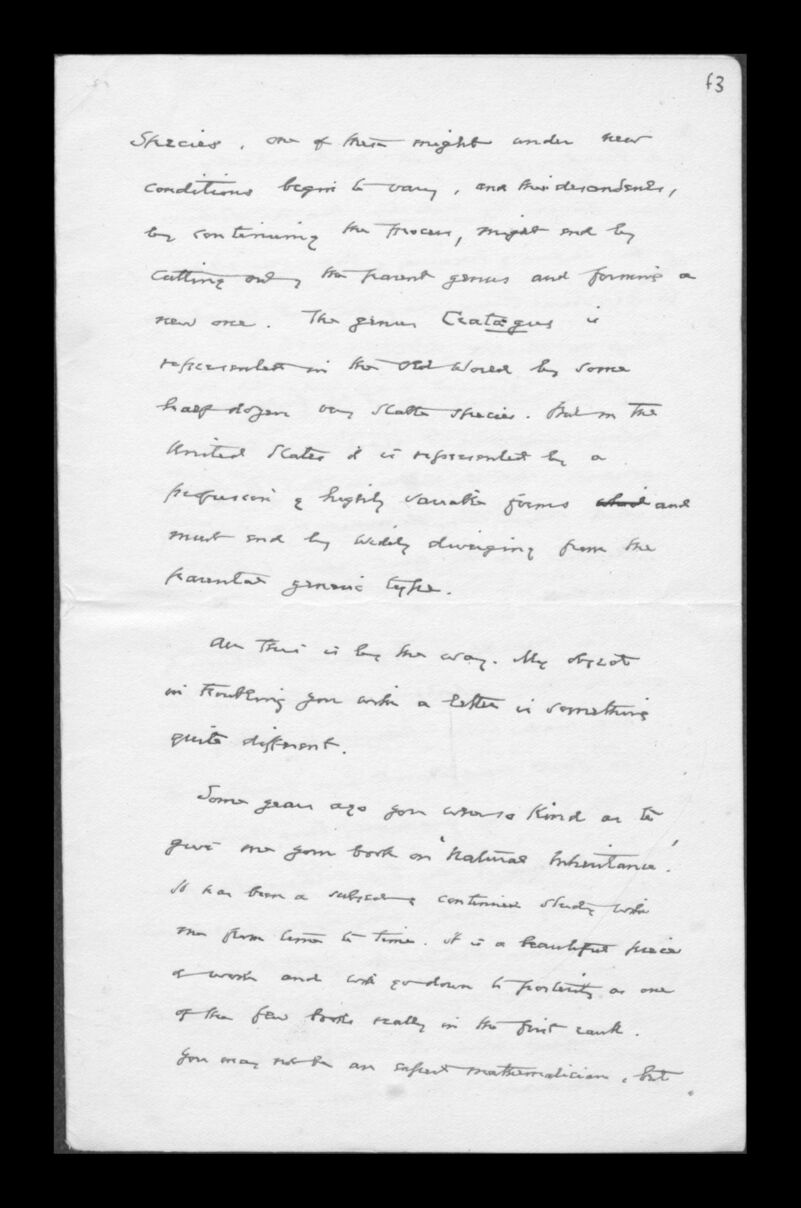 63
Species, one of them might under new
conditions begin to vary, and the descendents,
by continuing the process, might end by
cutting out the parent genus and forming a
new one. The genus Crataegus is
represented in the Old World by some
half dozen very stable species. But in the
United States it is represented by a
profusion of highly variable forms and
must end by widely diverging from the
parental generic type.
All this is by the way. My object
in troubling you with a letter is something
quite different.
Some years ago you were so kind as to
give me your book on 'Natural Inheritance'.
It has been a subject of continued study with
me from time to time. It is a beautiful piece
of work and will go down to posterity as one
of the few books really in the first rank.
You may not be an expert mathematician, but